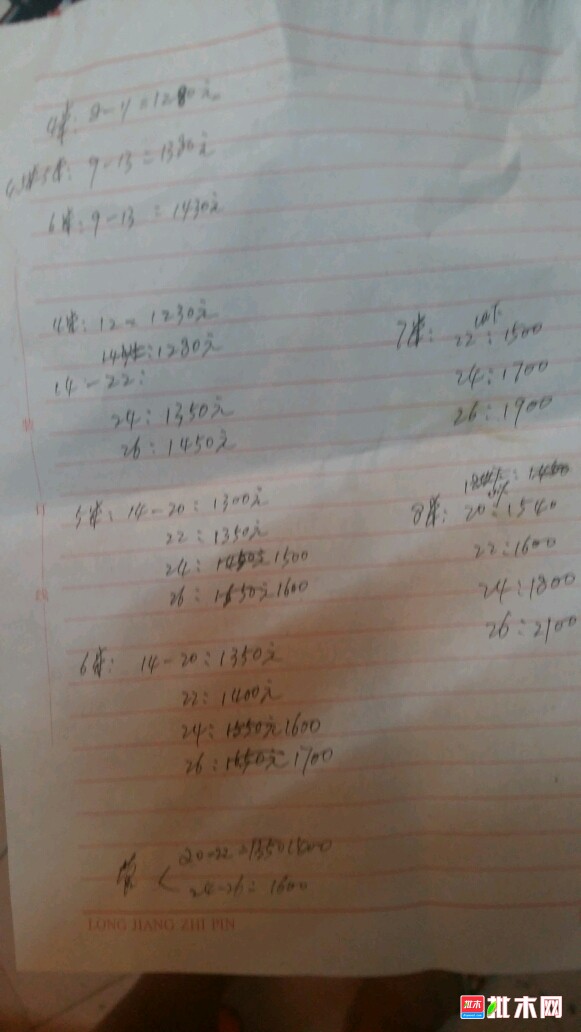 4米: 8-11=1280元
4.5米5米: 9-13=1380元
6米: 9-13=1430元
4米: 12=1230元
14米: 1280元
14-22:
24: 1350元
26: 1450元
5米: 14-20: 1300元
22: 1350元
24: 1450元 1500
26: 1550元 1600
6米: 14-20: 1350元
22: 1400元
24: 1550元 1600
26: 1650元 1700
20-22=1350 1500
24-26: 1600
7米: 22: 1500
24: 1700
26: 1900
8米: 20: 1540
22: 1600
24: 1800
26: 2100
装
订
线
LONG JIANG ZHI PIN
批木网